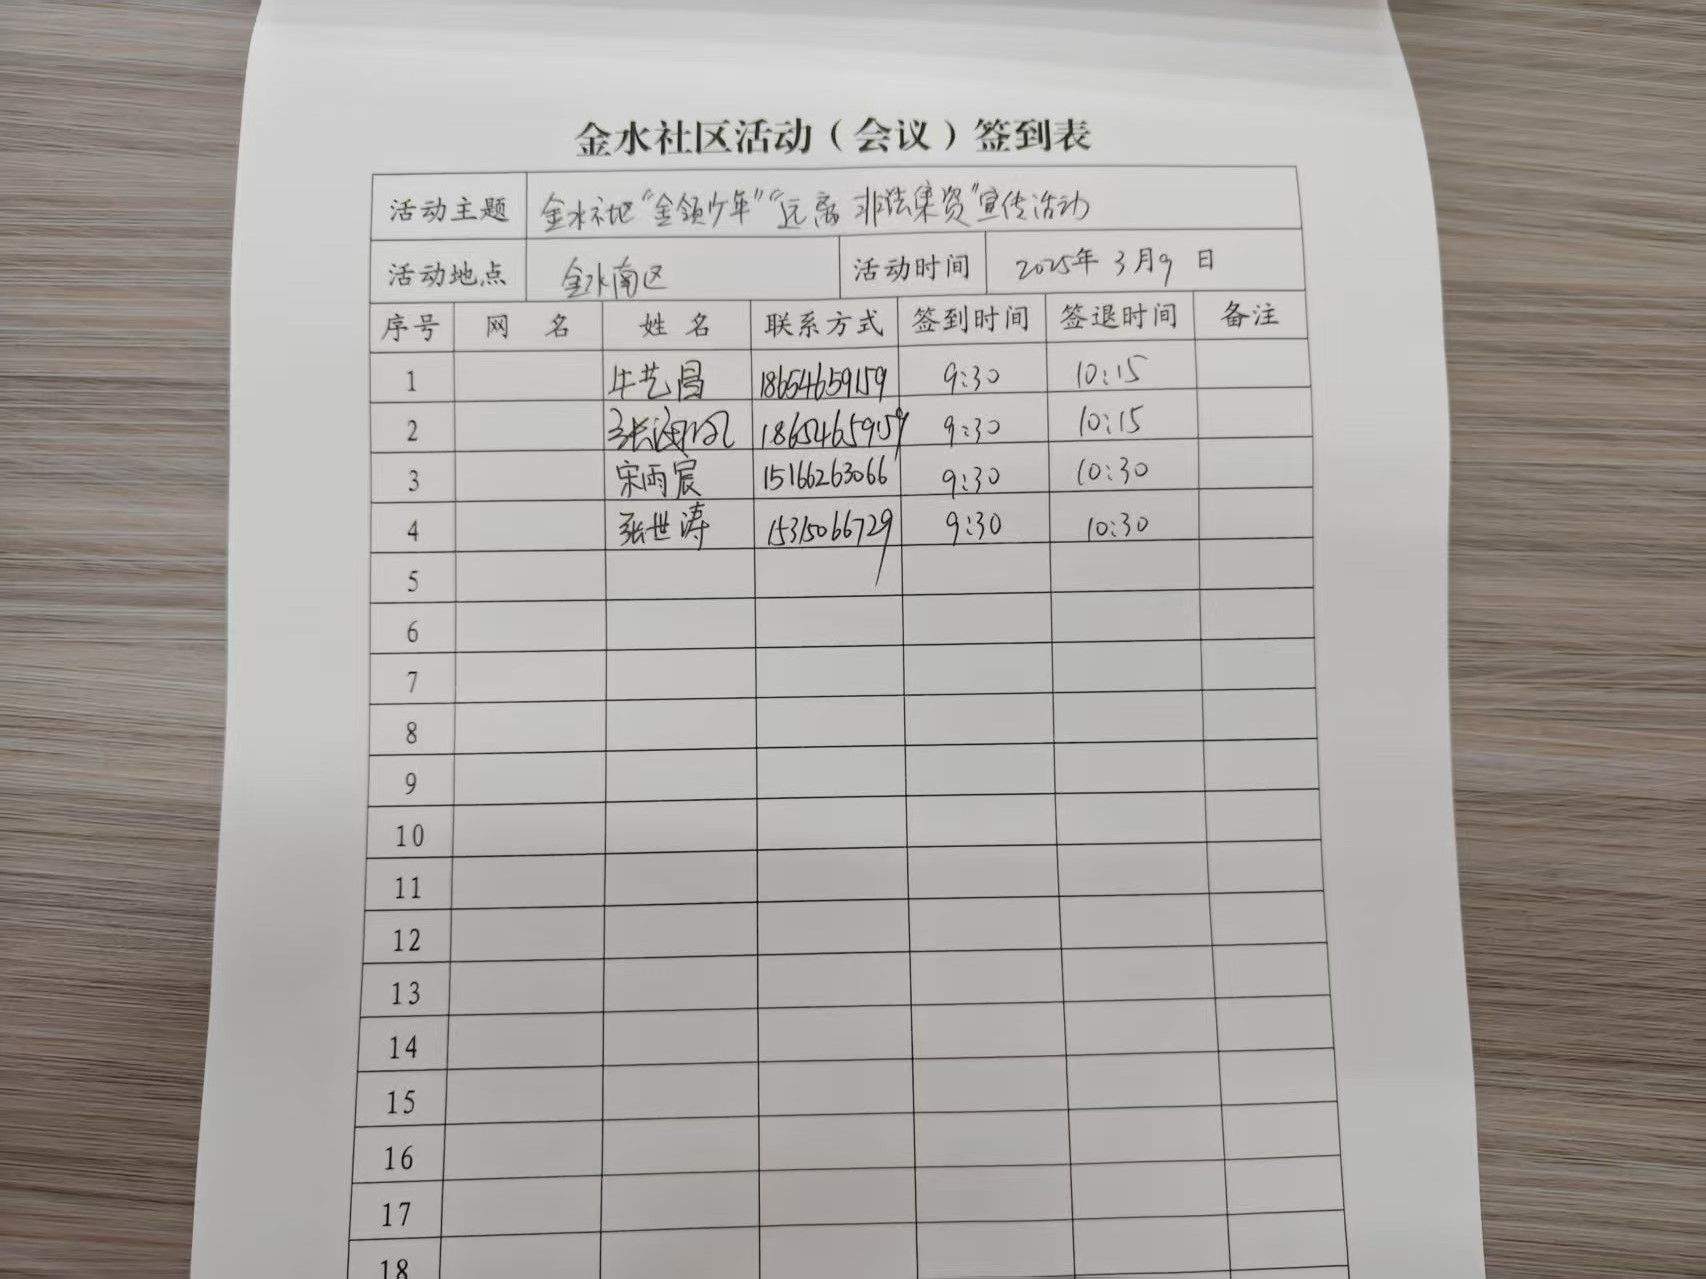 金水社区活动（会议）签到表
活动主题 金水社地“金领少年”“远离 非法集资”宣传活动
活动地点 金水南区 活动时间 2025年 3月9 日
序号 网 名 姓 名 联系方式 签到时间 签退时间 备注
1 牛艺昌 18654659159 9:30 10:15
2 张 18654659159 9:30 10:15
3 宋雨宸 15166263066 9:30 10:30
4 张世涛 15315066729 9:30 10:30
5
6
7
8
9
10
11
12
13
14
15
16
17
18